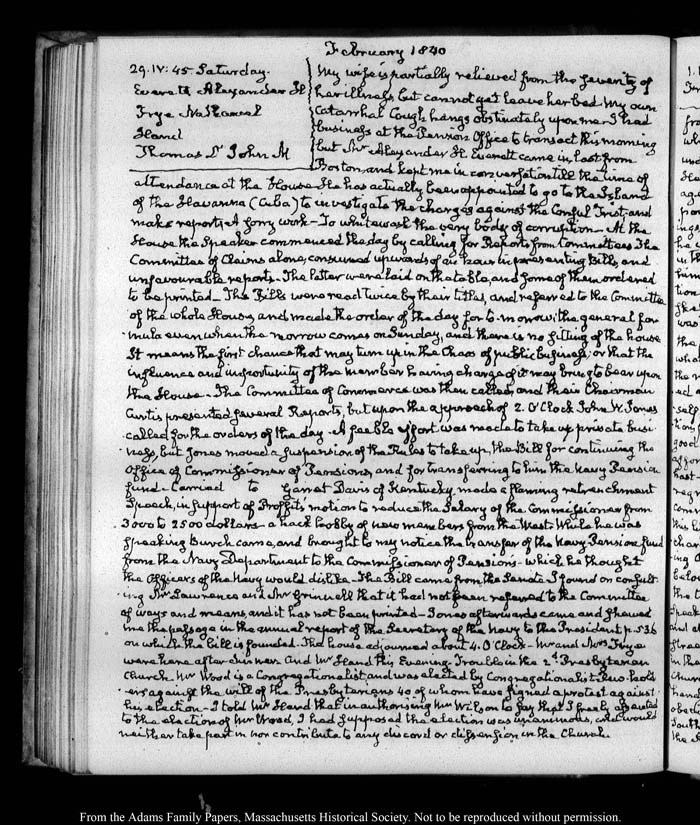 February 1840
29. IV: 45. Saturday.
Everett Alexander H
Frye Nathaniel
Hand
Thomas Dr John M
My wife is partially relieved from the severity of
her illness, but cannot yet leave her bed. My own
Catarrhal Cough hangs obstinately upon me. I had
business at the Pension Office to transact this morning
but Mr Alexander H. Everett came in last from
Boston, and kept me in conversation till the time of
attendance at the House. He has actually been appointed to go to the Island
of the Havanna (Cuba) to investigate the charges against the Consul Trist, and
make report. A sorry work—To whitewash the very body of corruption—At the
House, the Speaker commenced the day by calling for Reports from Committees. The
Committee of Claims alone, consumed upwards of an hour in presenting Bills, and
unfavourable reports. The latter were laid on the table, and some of them ordered
to be printed—The Bills were read twice by their titles, and referred to the Committee
of the whole House, and made the order of the day for to-morrow, the general for
mula even when the morrow comes on Sunday, and there is no sitting of the house
It means the first chance that may turn up in the Chaos of public business, or that the
influence and importunity of the member having charge of it may bring to bear upon
the House—The Committee of Commerce was then called, and their Chairman
Curtis presented several Reports, but upon the approach of 2. O'Clock John W. Jones
called for the orders of the day. A feeble effort was made to take up private busi
ness, but Jones moved a suspension of the Rules to take up, the Bill for continuing the
Office of Commissioner of Pensions, and for transferring to him the Navy Pension
fund—Carried to Garret Davis of Kentucky made a flaming retrenchment
Speech, in support of Proffit's motion to reduce the Salary of the Commissioner from
3000 to 2500 dollars—a hack hobby of new members from the West. While he was
speaking Burch came, and brought to my notice the transfer of the Navy Pension fund
from the Navy Department to the Commissioner of Pensions—which he thought
the Officers of the Navy would dislike—The Bill came from the Senate I found on consult
ing Mr Lawrence and Mr Grinnell that it had not been referred to the Committee
of ways and means, and it has not been printed—Jones afterwards came and shewed
me the passage in the annual report of the Secretary of the Navy to the President p. 536
on which the bill is founded. The house adjourned about 4. O'Clock—Mr and Mrs Frye
were here after dinner and Mr Hand this Evening. Trouble in the 2d Presbyterian
Church. Mr Wood is a Congregationalist and was elected by Congregationalist Pew-hold
ers against the will of the Presbyterians 40 of whom have signed a protest against
his election—I told Mr Hand that in authorising Mr Wilson to say that I freely assented
to the election of Mr Wood, I had supposed the election was unanimous, and would
neither take part in nor contribute to any discord or dissension in the Church.
From the Adams Family Papers, Massachusetts Historical Society. Not to be reproduced without permission.